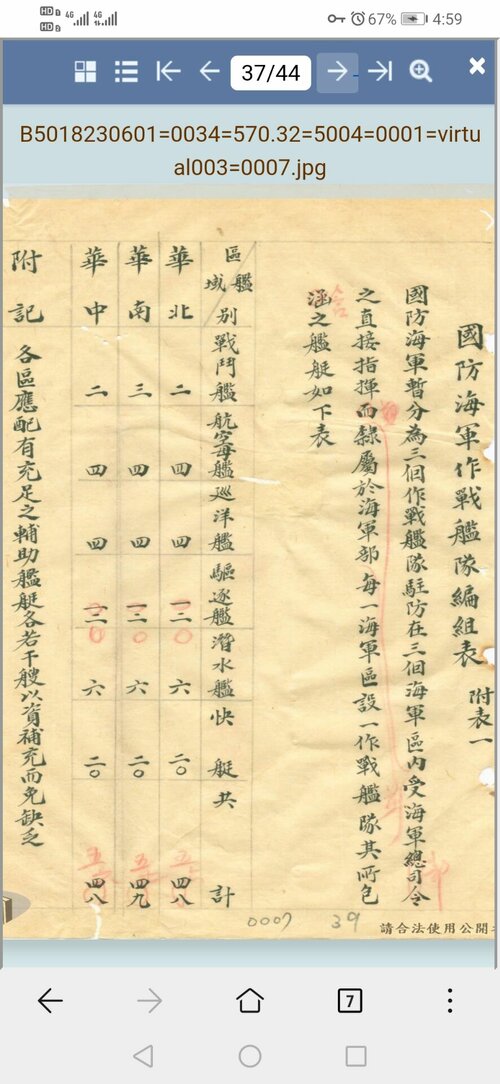 4G 4G 67% 4:59
37/44
B5018230601=0034=570.32=5004=0001=virtu
al003=0007.jpg
國防海軍作戰艦隊編組表 附表一
國防海軍暫分為三個作戰艦隊駐防在三個海軍區內受海軍總司令
之直接指揮而隸屬於海軍部每一海軍區設一作戰艦隊其所包
涵之艦艇如下表
含
區域 艦別 戰鬥艦 航空母艦 巡洋艦 驅逐艦 潛水艦 快艇 共計
華北 二 四 四 一二 六 二〇 四八
華南 三 四 四 一二 六 二〇 四九
華中 二 四 四 一二 六 二〇 四八
附記 各區應配有充足之輔助艦艇各若干艘以資補充而免缺乏
0007 39
請合法使用公開
7